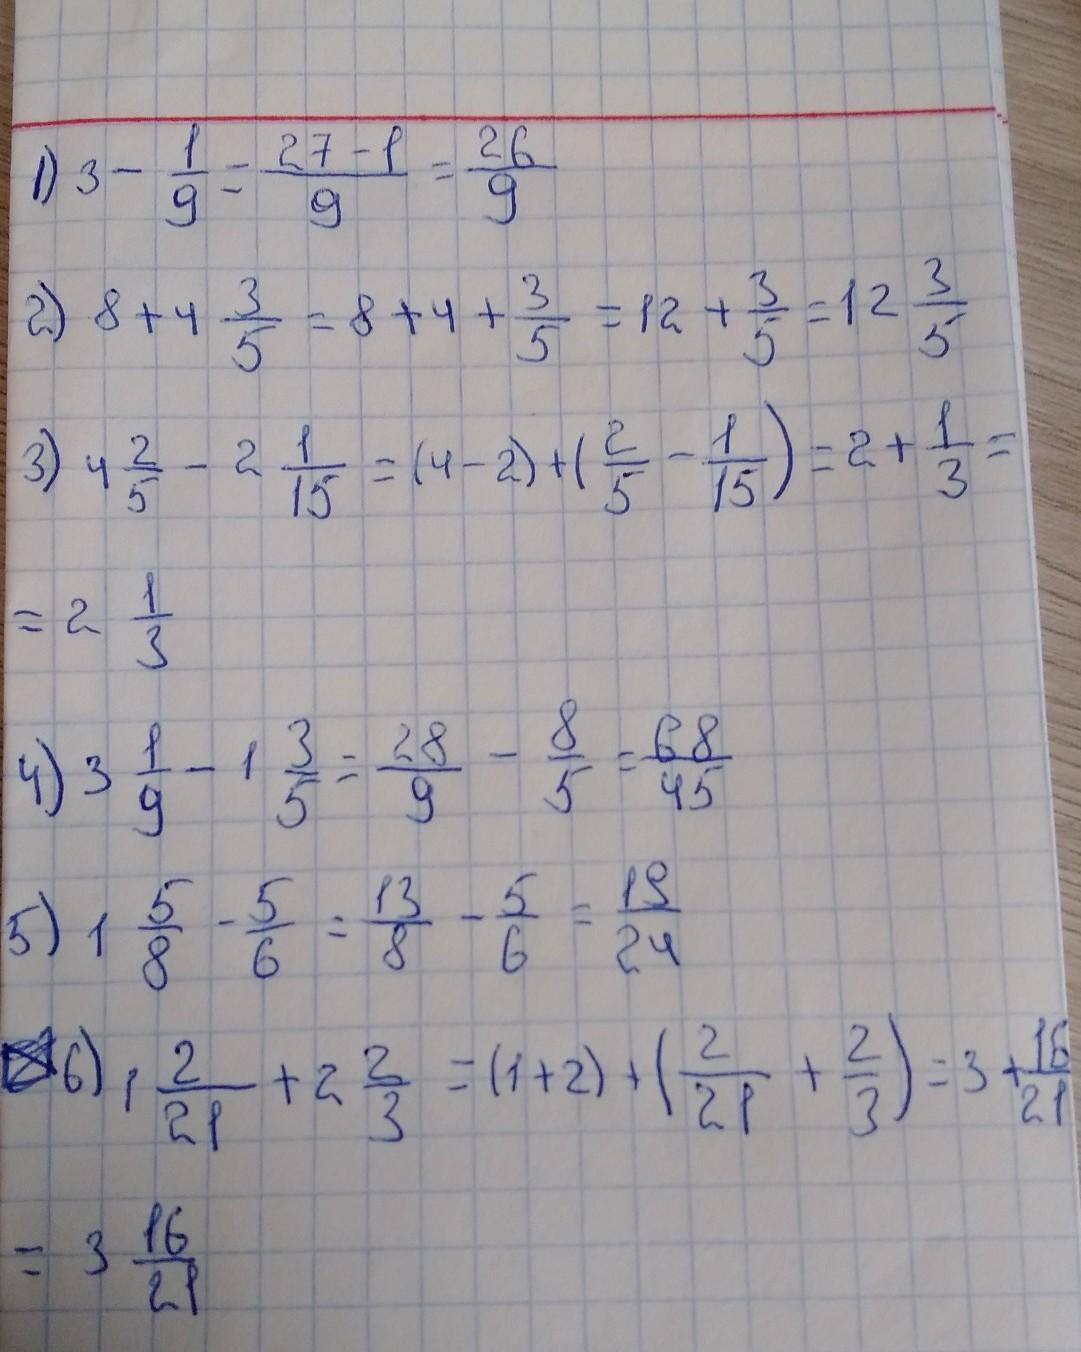 1) 3 - 1/9 = (27-1)/9 = 26/9
2) 8 + 4 3/5 = 8 + 4 + 3/5 = 12 + 3/5 = 12 3/5
3) 4 2/5 - 2 1/15 = (4-2) + (2/5 - 1/15) = 2 + 1/3 =
= 2 1/3
4) 3 1/9 - 1 3/5 = 28/9 - 8/5 = 68/45
5) 1 5/8 - 5/6 = 13/8 - 5/6 = 19/24
6) 1 2/21 + 2 2/3 = (1+2) + (2/21 + 2/3) = 3 + 16/21
= 3 16/21